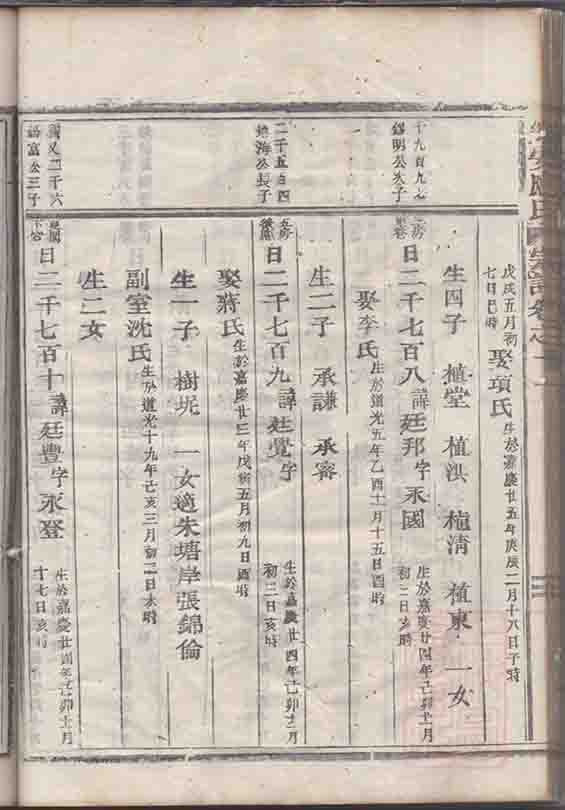 戊戌五月初七日巳時
娶項氏 生於嘉慶廿五年庚辰二月十六日子時
生四子 植堂 植洪 植清 植東 一女
十九百九七
錦明公次子
日二千七百八 諱廷邦字永國 生於嘉慶廿四年己卯十二月初三日亥時
娶李氏 生於道光五年乙酉十一月十五日酉時
生二子 承謙 承審
二千五百四
公長子
五房
日二千七百九 諱廷覺字 生於嘉慶廿四年己卯十二月初三日亥時
娶蔣氏 生於嘉慶廿三年戊寅五月初九日酉時
生一子 樹 一女適朱塘岸張錦倫
副室沈氏 生於道光十九年己亥三月初二日未時
生二女
又二千六
富公三子
日二千七百十 諱廷豐字永登 生於嘉慶廿四年己卯十二月十七日亥時
氏宗譜卷之